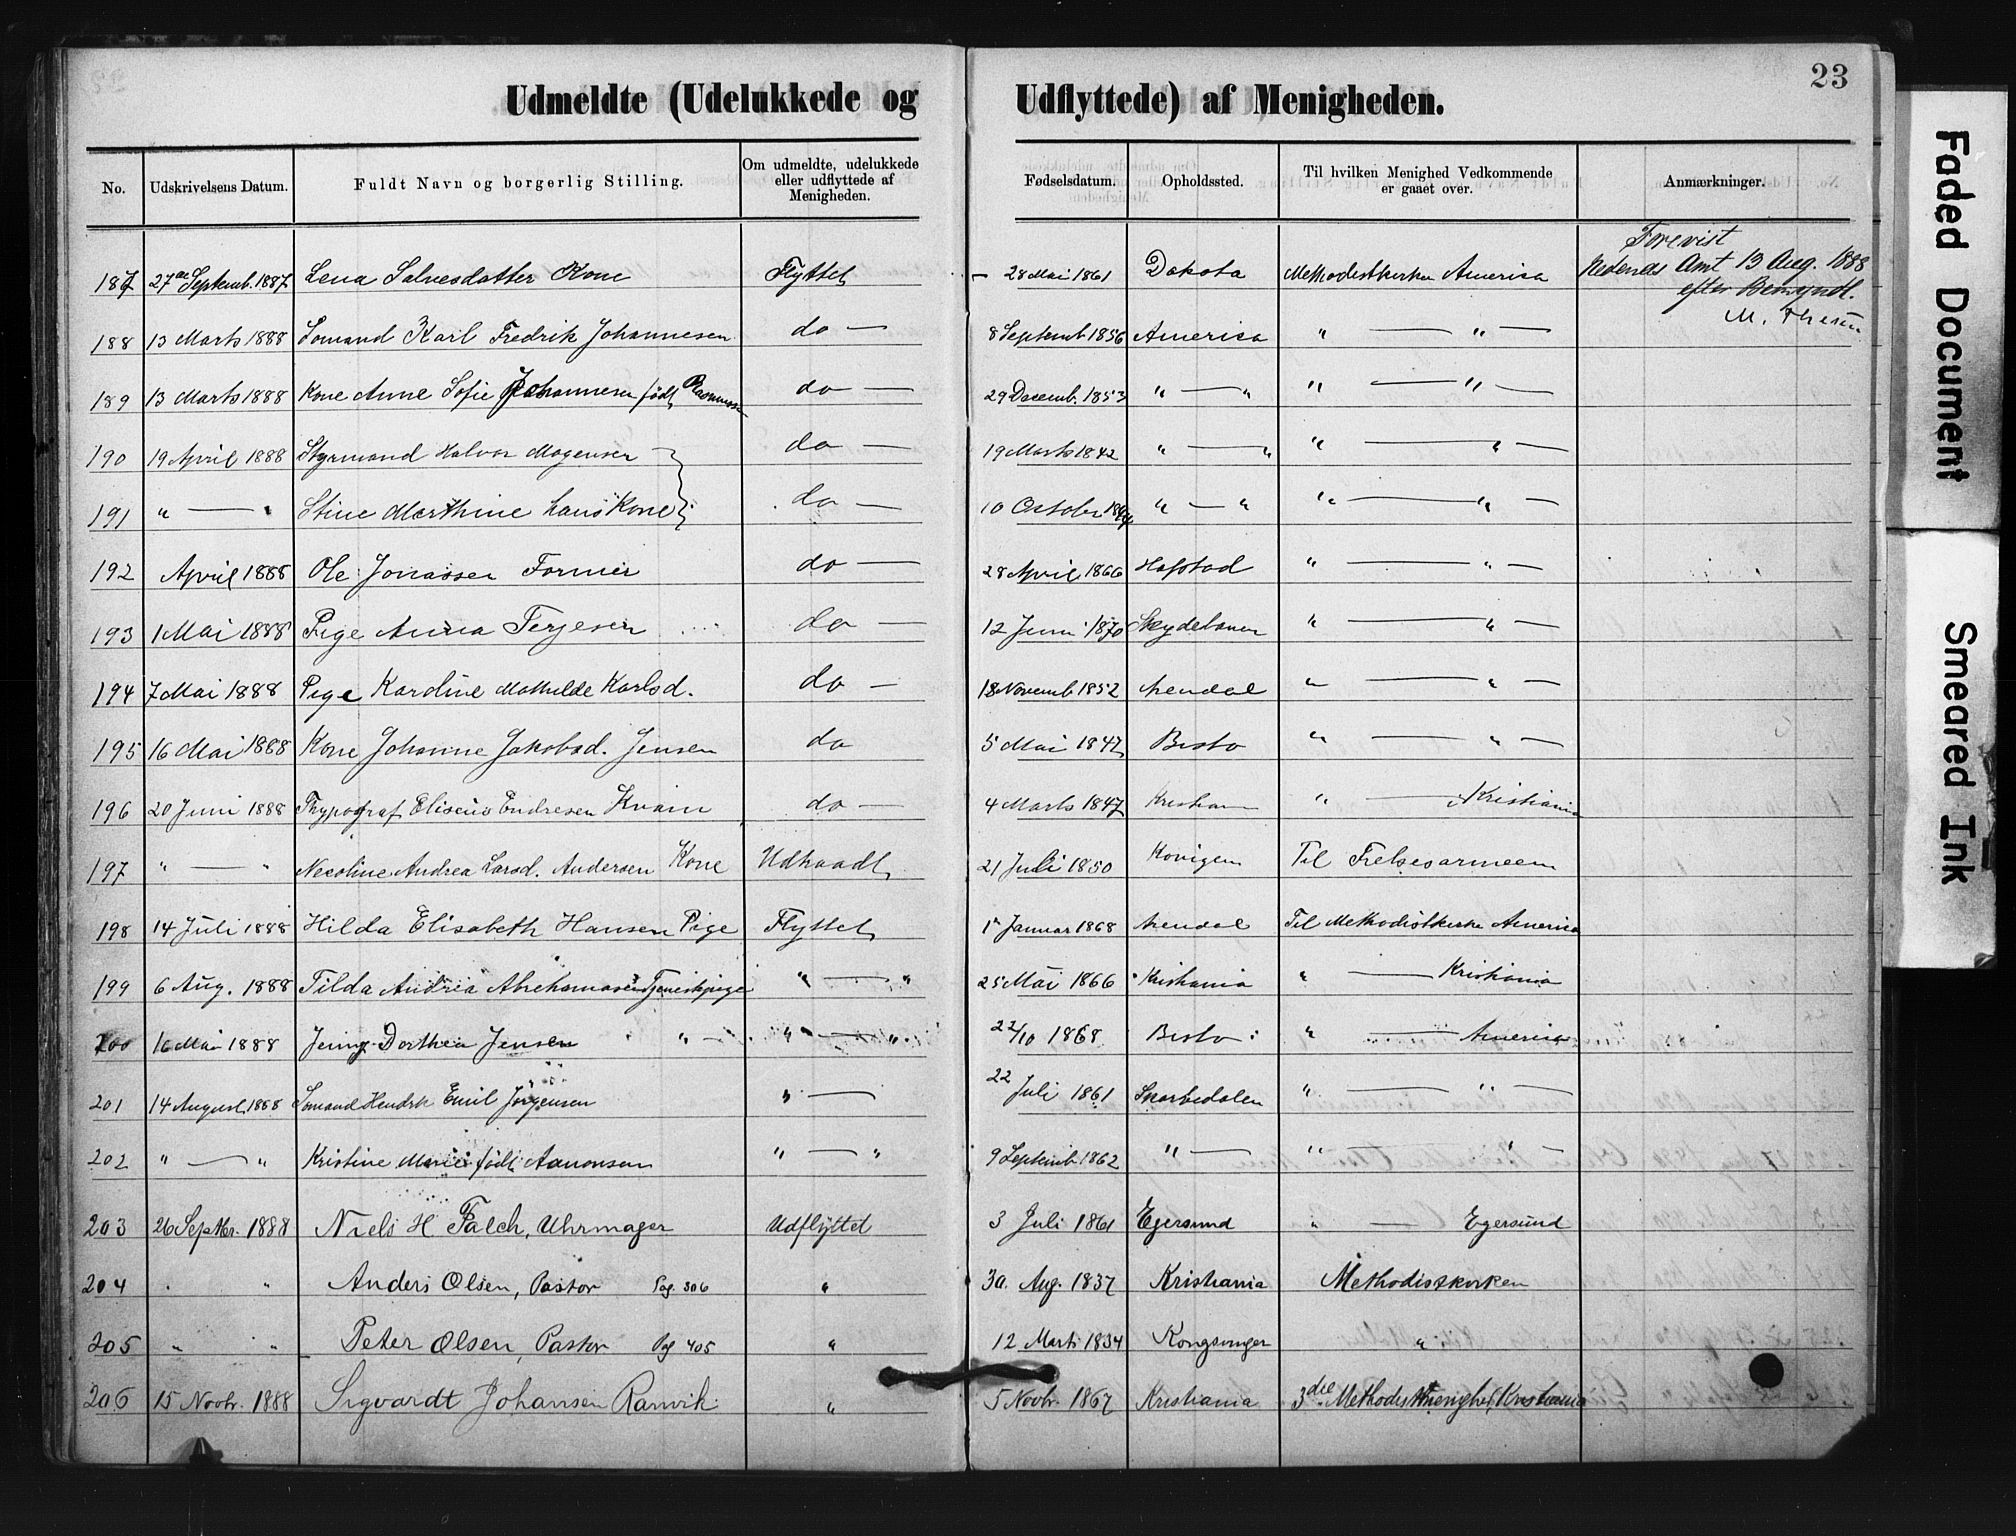 23
Udmeldte (Udelukkede og Udflyttede) af Menigheden.
No. Udskrivelsens Datum. Fuldt Navn og borgerlig Stilling. Om udmeldte, udelukkede eller udflyttede af Menigheden. Fødselsdatum. Opholdssted. Til hvilken Menighed Vedkommende er gaaet over. Anmærkninger.
Forevist
187 27de Septemb. 1887 Lena Salvesdatter Kone Flyttet 28 Mai 1861 Dakota Methodistkirken America Nedenæs Amt 13 Aug. 1888
efter Bemyndl.
M.
188 13 Marts 1888 Sømand Karl Fredrik Johannesen do — 8 Septemb 1856 America " — " —
189 13 Marts 1888 Kone Anne Sofie Johannesen født Rasmussen do — 29 Decemb. 1853 " — " " — " —
190 19 April 1888 Styrmand Halvor Mogensen do — 19 Marts 1842 " — " " — " —
191 " — " Stine Marthine hans Kone do — 10 October " — " " — " —
192 April 1888 Ole Jonassen Former do — 28 April 1866 Hafstad " — " —
193 1 Mai 1888 Pige Anna Terjesen do — 12 Juni 1870 " — " —
194 7 Mai 1888 Pige Karoline Mathilde Karlsd. do — 18 Novemb 1852 Arendal " — " —
195 16 Mai 1888 Kone Johanne Jakobsd. Jensen do 5 Mai 1847 Besto " — " —
196 20 Juni 1888 Thypograf Eliseus Endresen Kvam do — 4 Marts 1847 Kristian " — Kristiania
197 " — " Necoline Andrea Larsd. Andersen Kone Udtraadt 21 Juli 1850 Til Frelsesarmeen
198 14 Juli 1888 Hilda Elisabeth Hansen Pige Flyttet Januar 1868 Arendal Til Methodistkirke America
199 6 Aug. 1888 Tilda Andrea Abrehamsen Tjenestpige " — " 25 Mai 1866 Kristiania " — Kristiania
200 16 Mai 1888 Jenny Dorthea Jensen " — " — " 22/10 1868 Besto " — America
201 14 August 1888 Sømand Hendrk Emil Jørgensen " — 22 Juli 1861 Skarbedalen " — " —
202 " — " Kristine Marie født Aanonsen " — " 9 Septemb 1862 " — " — " —
203 26 Septbr. 1888 Niels H Falch, Uhrmager Udflyttet 3 Juli 1861 Egersund " — Egersund
204 " " Anders Olsen, Pastor Pag. 306 " 30. Aug. 1837 Kristiania Methodistkirken
205 " " Peter Olsen, Pastor Pag 405 " 12 Marts 1834 Kongsvinger "
206 15 Novbr. 1888 Sigvardt Johansen Ranvik " 5 Novbr. 1867 Kristiania 3die Methodistmenighet, Kristiania
Faded Document
Smeared Ink